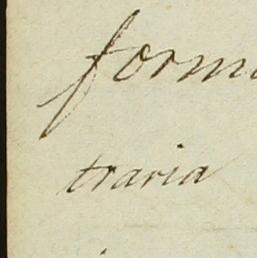 form
traria